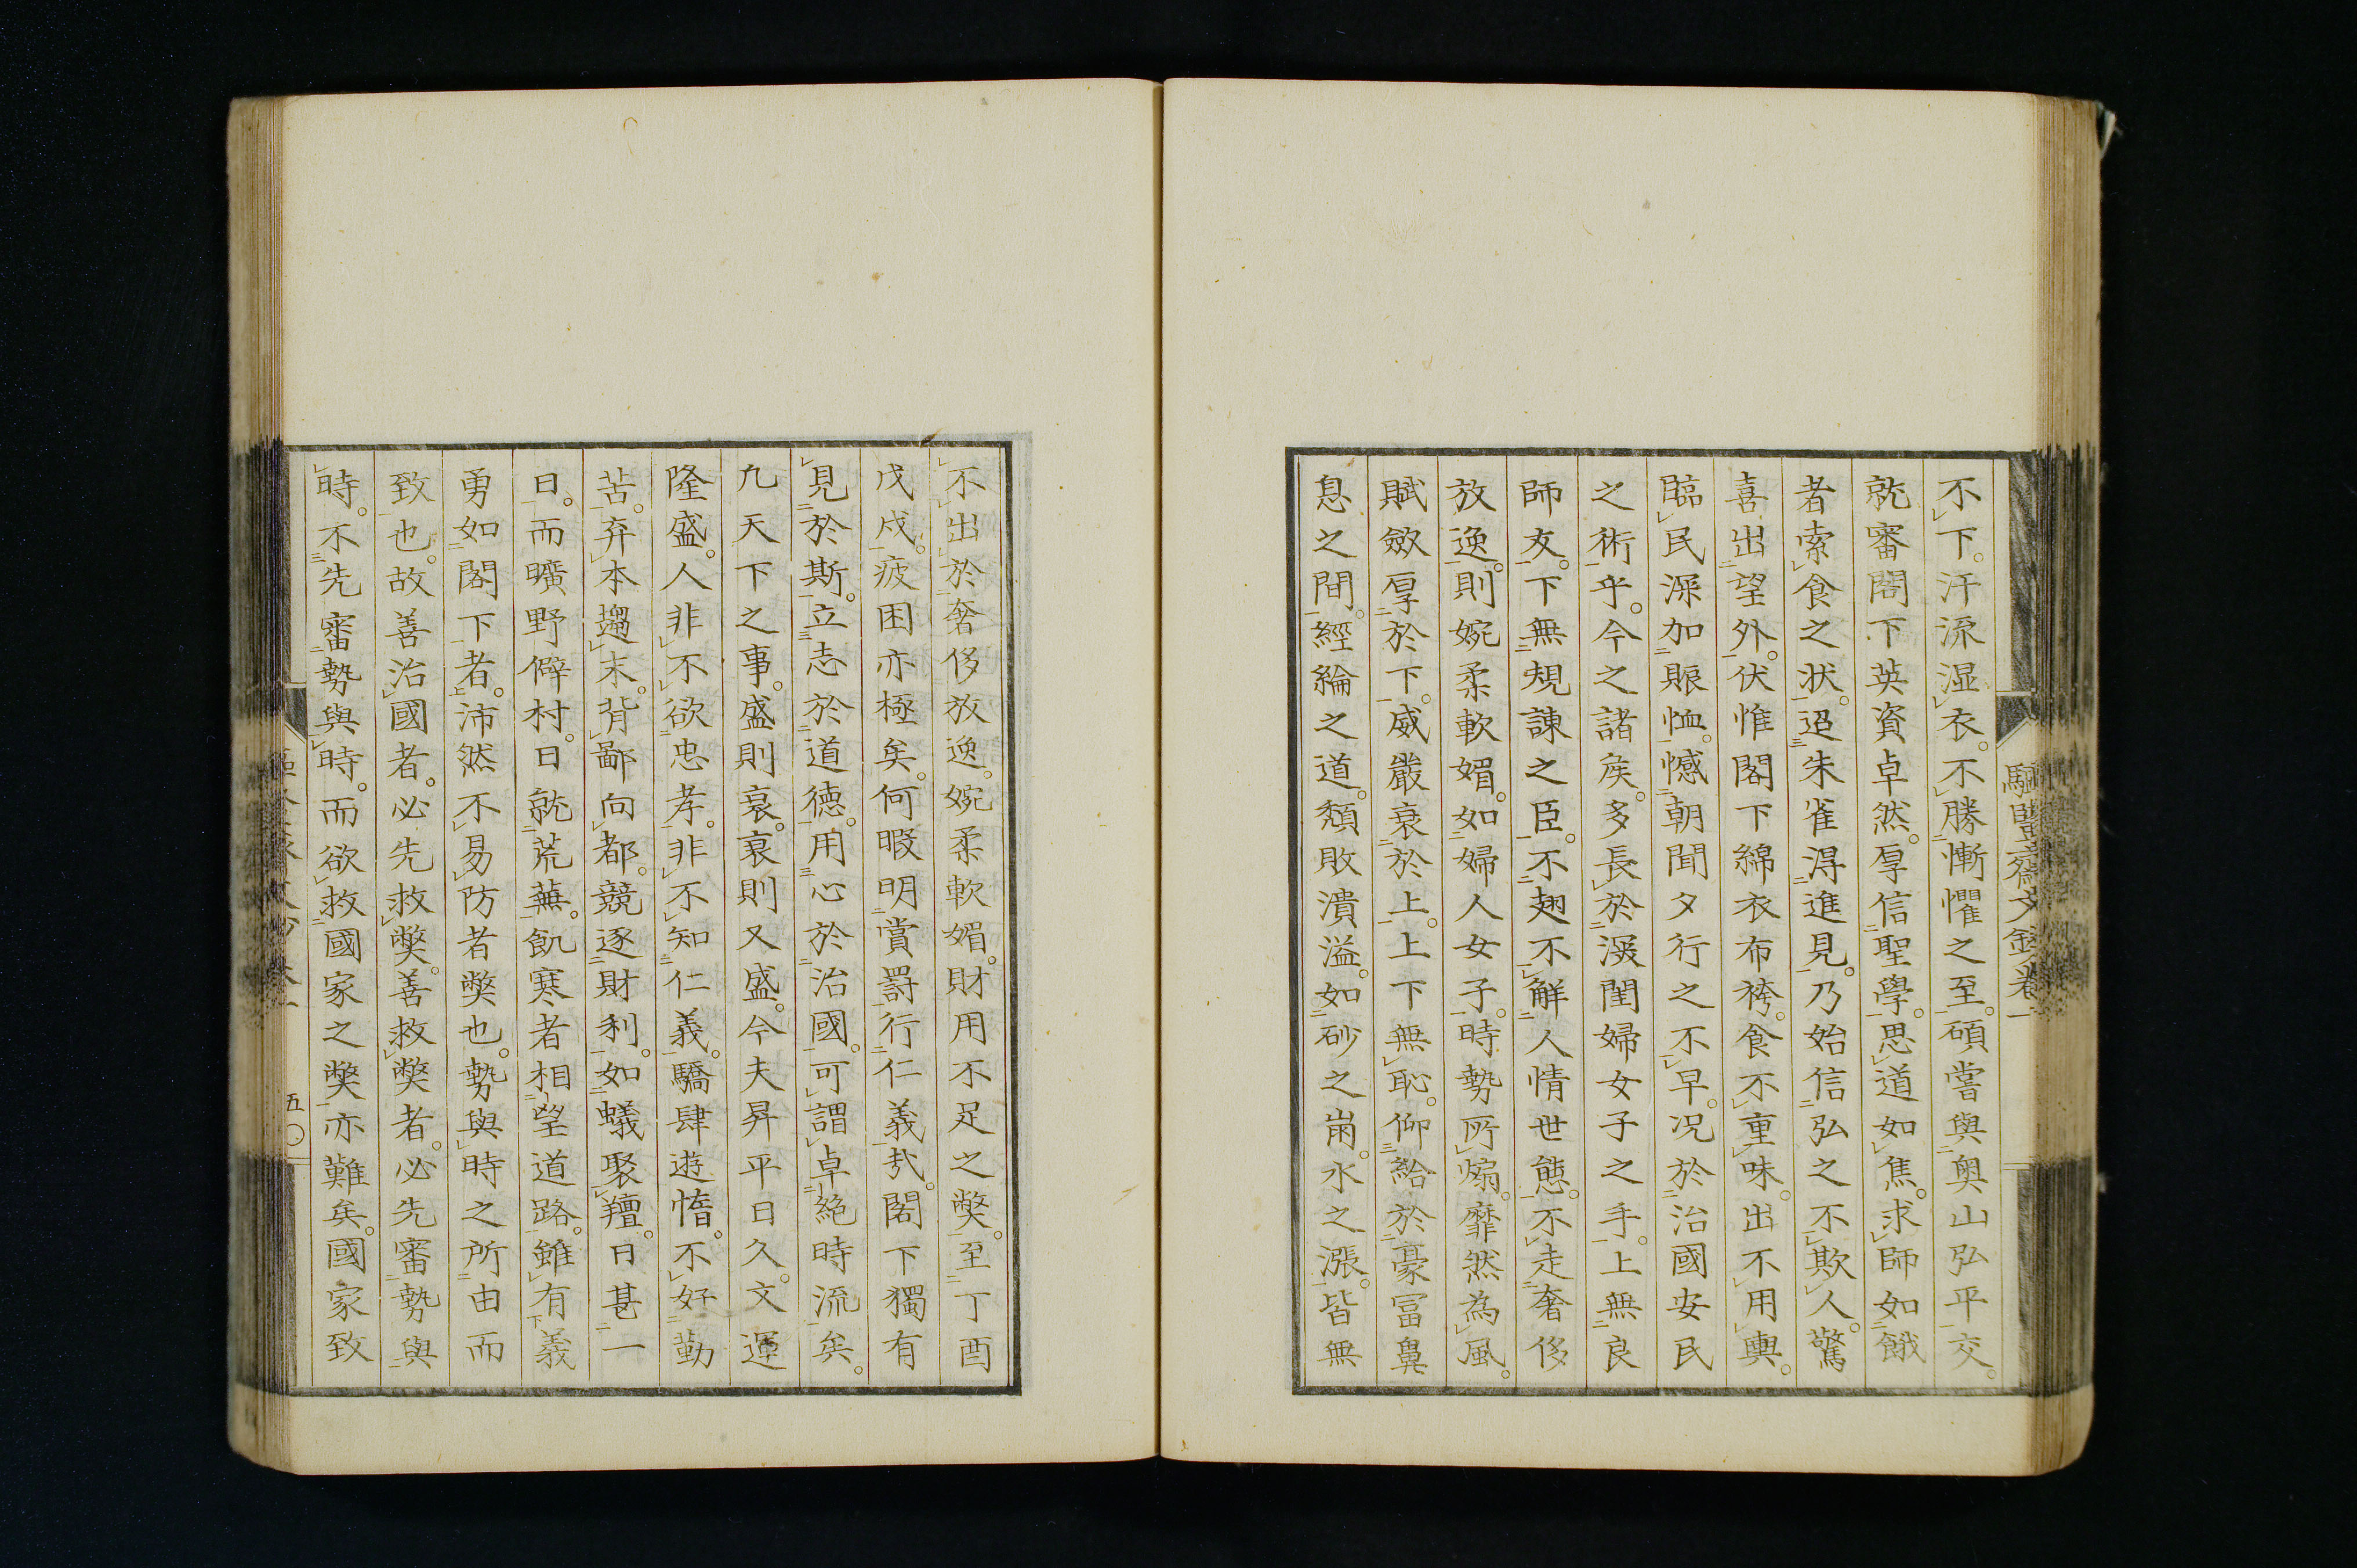 不下。汗流湿衣。不勝慚懼之至。碩嘗與奥山弘平交。
就審閤下英資卓然。厚信聖學。思道如焦。求師如餓
者索食之状。迢朱雀淂進見。乃始信弘之不欺人。驚
喜出望外。伏惟閤下綿衣布袴。食不重味。出不用輿。
臨民深加賑恤。憾朝聞夕行之不早。况於治國安民
之術乎。今之諸矦。多長於深閨婦女子之手。上無良
師友。下無規諌之臣。不翅不觧人情世態。不走奢侈
放逸。則婉柔軟媚。如婦人女子。時勢所煽。靡然為風。
賦斂厚於下。威嚴衰於上。上下無恥。仰給於豪冨鼻
息之間。經綸之道。頽敗潰溢。如砂之崩。水之漲。皆無
不出於奢侈放逸。婉柔軟媚。財用不足之獘。至丁酉
戊戌。疲困亦極矣。何暇明賞罰行仁義㢤。閤下獨有
見於斯。立志於道徳。用心於治國。可謂卓絶時流矣。
凢天下之事。盛則衰。衰則又盛。今夫昇平日久。文運
隆盛。人非不欲忠孝。非不知仁義。驕肆遊惰。不好勤
苦。弃本趨末。背鄙向都。競逐財利。如蟻聚羶。日甚一
日。而曠野僻村。日就荒蕪。飢寒者相望道路。雖有義
勇如閤下者。沛然不易防者獘也。勢與時之所由而
致也。故善治國者。必先救獘。善救獘者。必先審勢與
時。不先審勢與時。而欲救國家之獘亦難矣。國家致
五〇